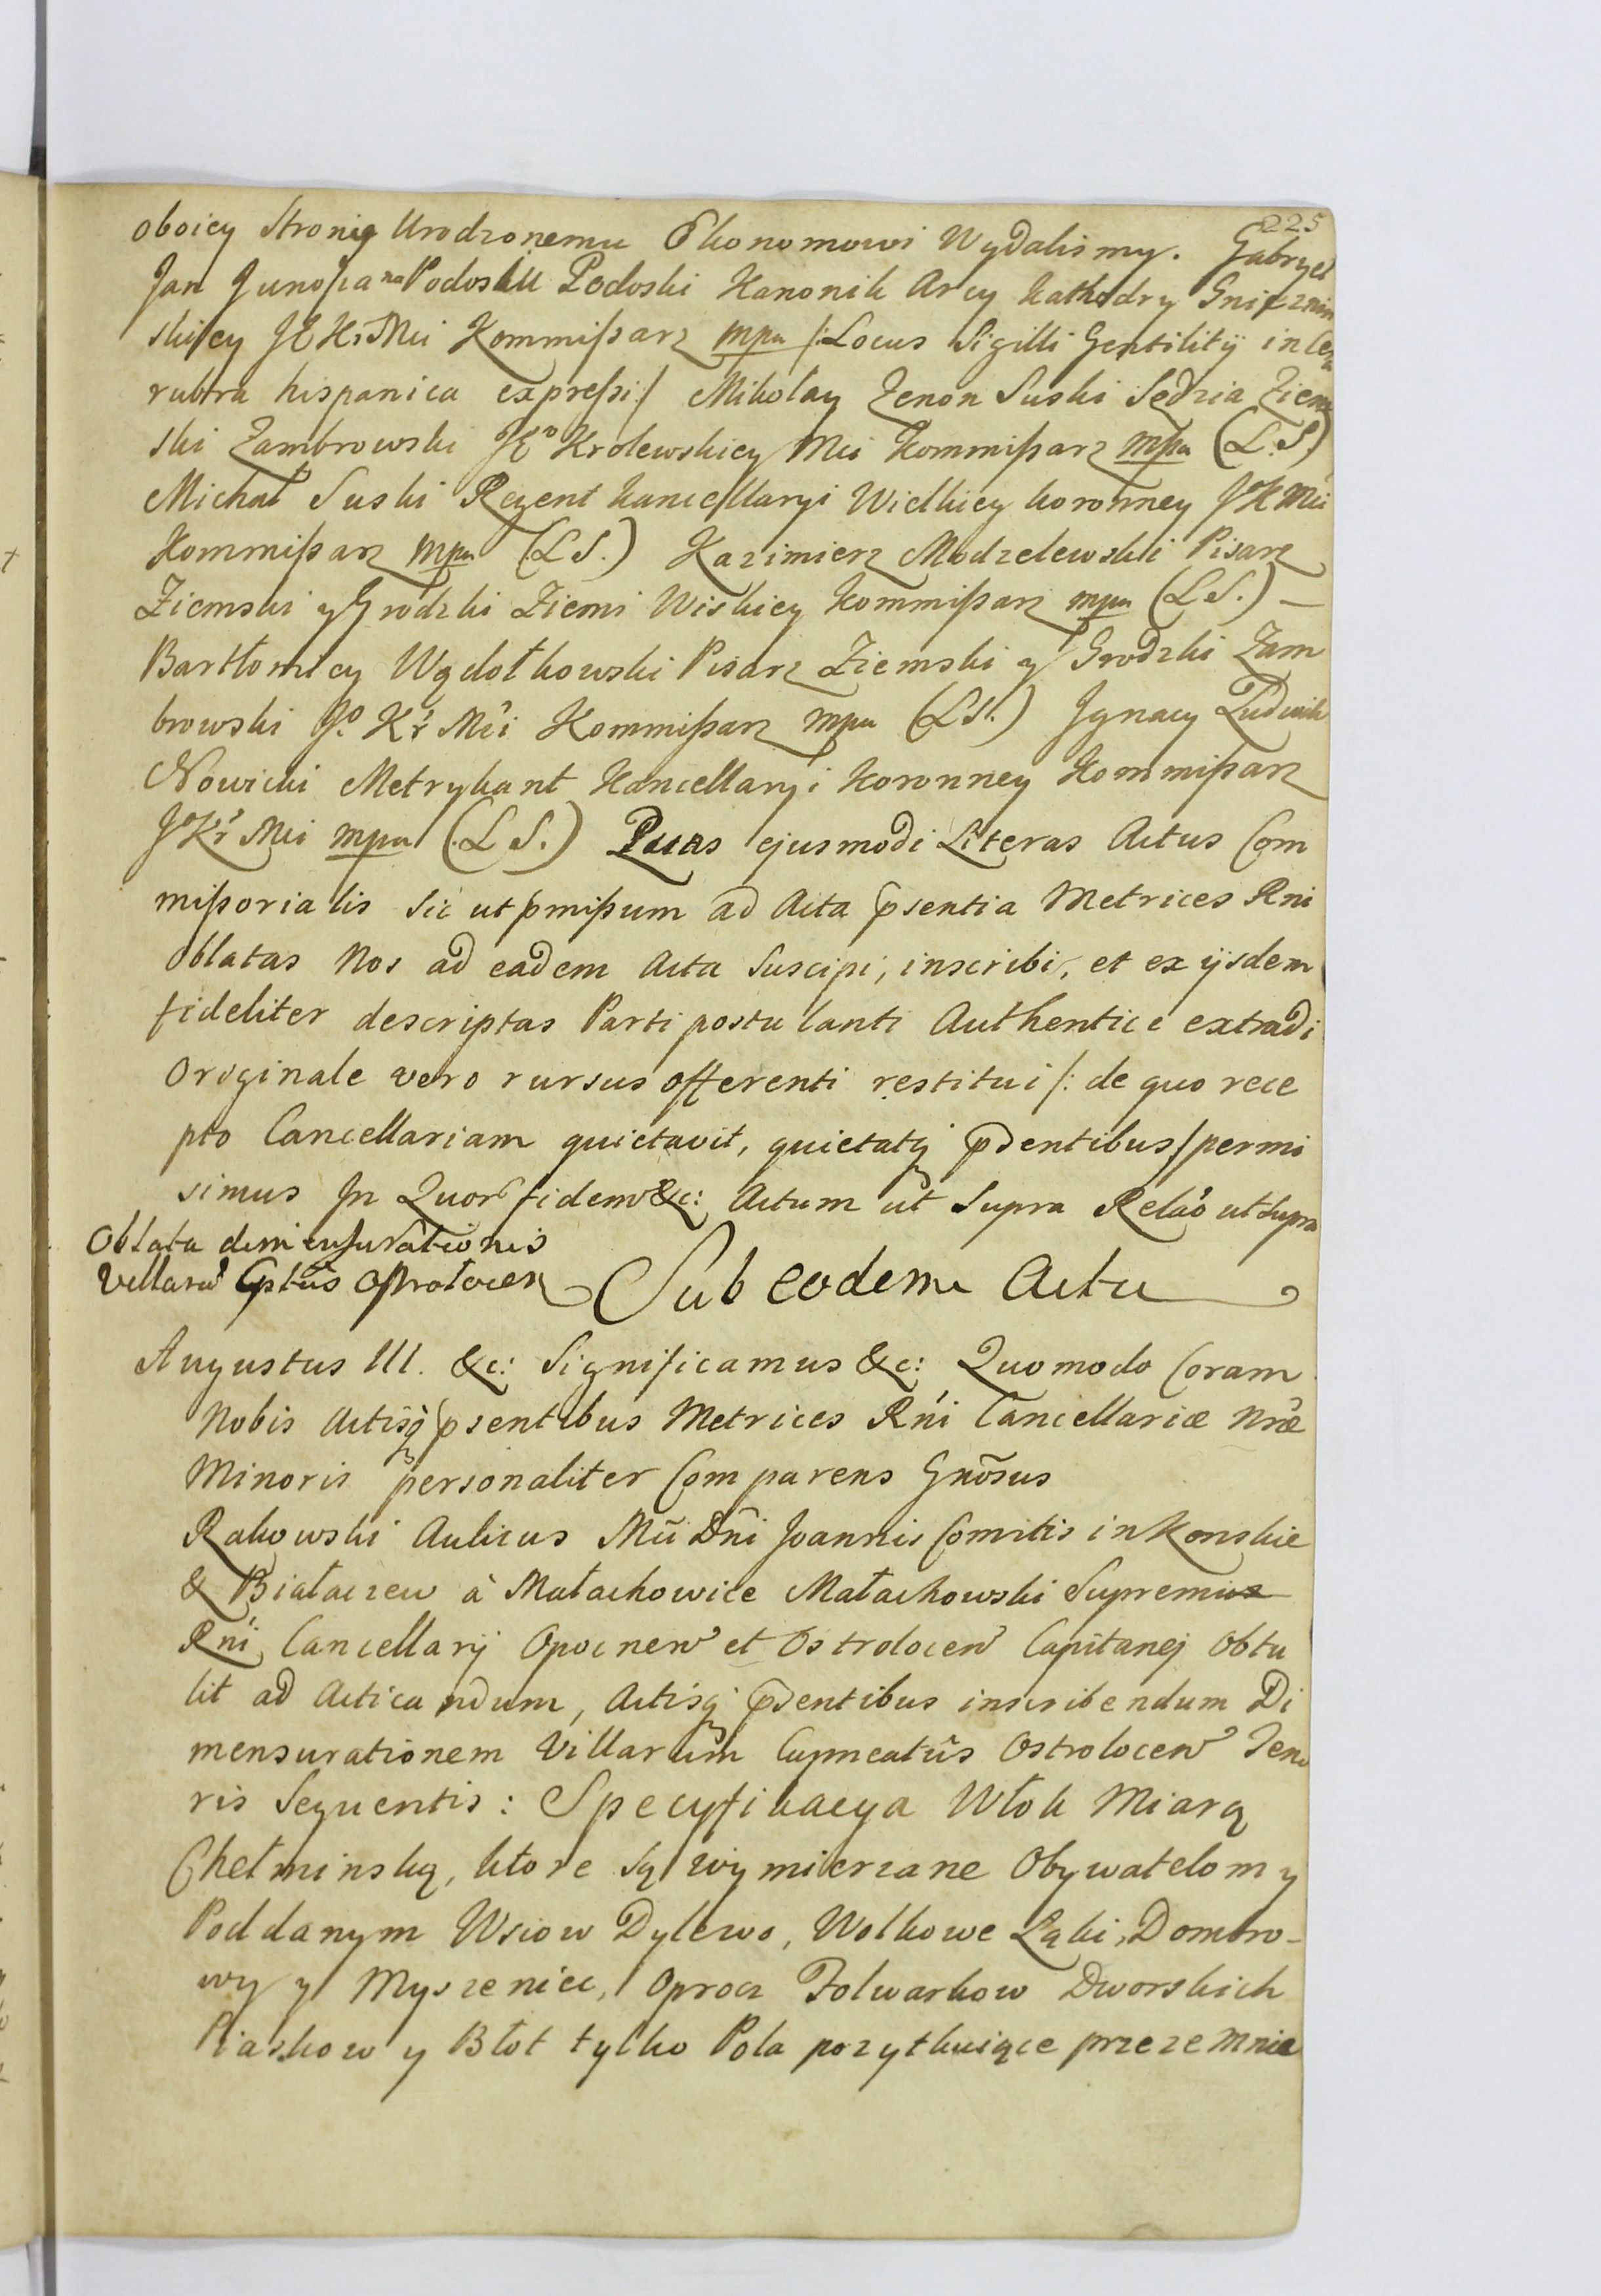 225
oboiey Stronie Urodzonemu Ekonomowi Wydalismy. Gabryel
Jan Junosza na Podosku Podoski Kanonik Arcy Kathedry Gnieznin
skiey JE Kr Mci Kommißarz mpn /: Locus Sigilli Gentilitij in Cera
rubra hispanica expreßi :/ Mikołay Zenon Suski Sędzia Ziem
ski Zambrowski JEo Krolewskiey Mci Kommißarz mpn (L.S.)
Michał Suski Regent Kancellaryi Wielkiey koronney JoK Mci
Kommißarz mpn (LS.) Kazimierz Modzelewski Pisarz
Ziemski y Grodzki Ziemi Wiskiey Kommißarz mpn (LS.) —
Bartłomiey Wądołkowski Pisarz Ziemski y Grodzki Zam
browski Jo. Kr Mci Kommißarz mpn (LS.) Jgnacy Ludwik
Nowicki Metrykant Kancellaryi Koronney Kommißarz
JoKr Mci mpn (LS.) Quas ejusmodi Literas Actus Com
mißorialis Sic ut pmißum ad Acta psentia Metrices Rni
oblatas Nos ad eadem Acta Suscipi, inscribi, et ex ijsdem
fideliter descriptas Parti postulanti Authentice extradi
Originale vero rursus offerenti restitui /: de quo rece
pto Cancellariam quietavit, quietatq pdentibus :/ permi
simus Jn Quor fidem &c: Actum ut Supra Relao ut Supra
Oblata dimensurationis
Villaru Cptus Ostrolocen
Sub eodem Actu
Augustus III. &c: Significamus &c: Quomodo Coram
Nobis Actisq psentibus Metrices Rni Cancellariæ Nræ
Minoris personaliter Comparens Gnosus
Rakowski Aulicus Mci Dni Joannis Comitis in Konskie
& Białaczew à Małachowice Małachowski Supremi
Rni Cancellarij Opocnen et Ostrolocen Capitanej Obtu
lit ad Acticandum, Actisq pdentibus inscribendum Di
mensurationem Villarum Capneatus Ostrolocen Teno
ris Sequentis: Specyfikacya Włok Miarą
Chełminską, ktore są wymierzane Obywatelom y
Poddanym Wsiow Dylewo, Wolkowe Łąki, Dombro-
wy y Myszeniec, Oprocz Folwarkow Dworskich
Piaskow y Błot tylko Pola pozytkuiące przezemnie